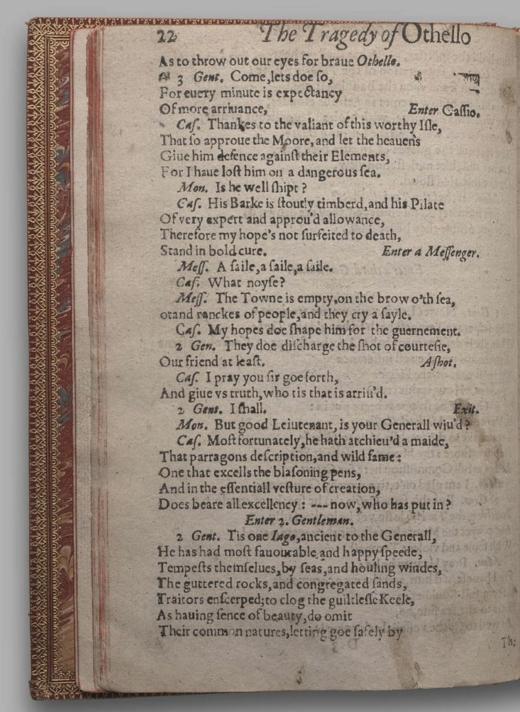 22 The Tragedy of Othello
As to throw out our eyes for braue Othello.
3 Gent. Come,lets doe ſo,
For euery minute is expectancy
Of more arriuance, Enter Caſſio.
Caſ. Thankes to the valiant of this worthy Iſle,
That ſo approue the Moore, and let the heauens
Giue him defence againſt their Elements,
For I haue loſt him on a dangerous ſea.
Mon. Is he well ſhipt ?
Caſ. His Barke is ſtoutly timberd, and his Pilate
Of very expert and approu'd allowance,
Therefore my hope's not ſurfeited to death,
Stand in bold cure. Enter a Meſſenger.
Meſſ. A ſaile,a ſaile,a ſaile.
Caſ. What noyſe?
Meſſ. The Towne is empty,on the brow o'th ſea,
otand ranckes of people,and they cry a ſayle.
Caſ. My hopes doe ſhape him for the guernement.
2 Gen. They doe diſcharge the ſhot of courteſie,
Our friend at leaſt. A ſhot.
Caſ. I pray you ſir goe forth,
And giue vs truth,who tis that is arriu'd.
2 Gent. I ſhall. Exit.
Mon. But good Leiutenant, is your Generall wiu'd ?
Caſ. Moſt fortunately,he hath atchieu'd a maide,
That parragons deſcription,and wild fame :
One that excells the blaſoning pens,
And in the eſſentiall veſture of creation,
Does beare all excellency : --- now, who has put in ?
Enter 2. Gentleman.
2 Gent. Tis one Iago,ancient to the Generall,
He has had moſt fauourable and happy ſpeede,
Tempeſts themſelues,by ſeas,and houling windes,
The guttered rocks,and congregated ſands,
Traitors enſcerped;to clog the guiltleſſe Keele,
As hauing ſence of beauty,do omit
Their common natures,letting goe ſafely by